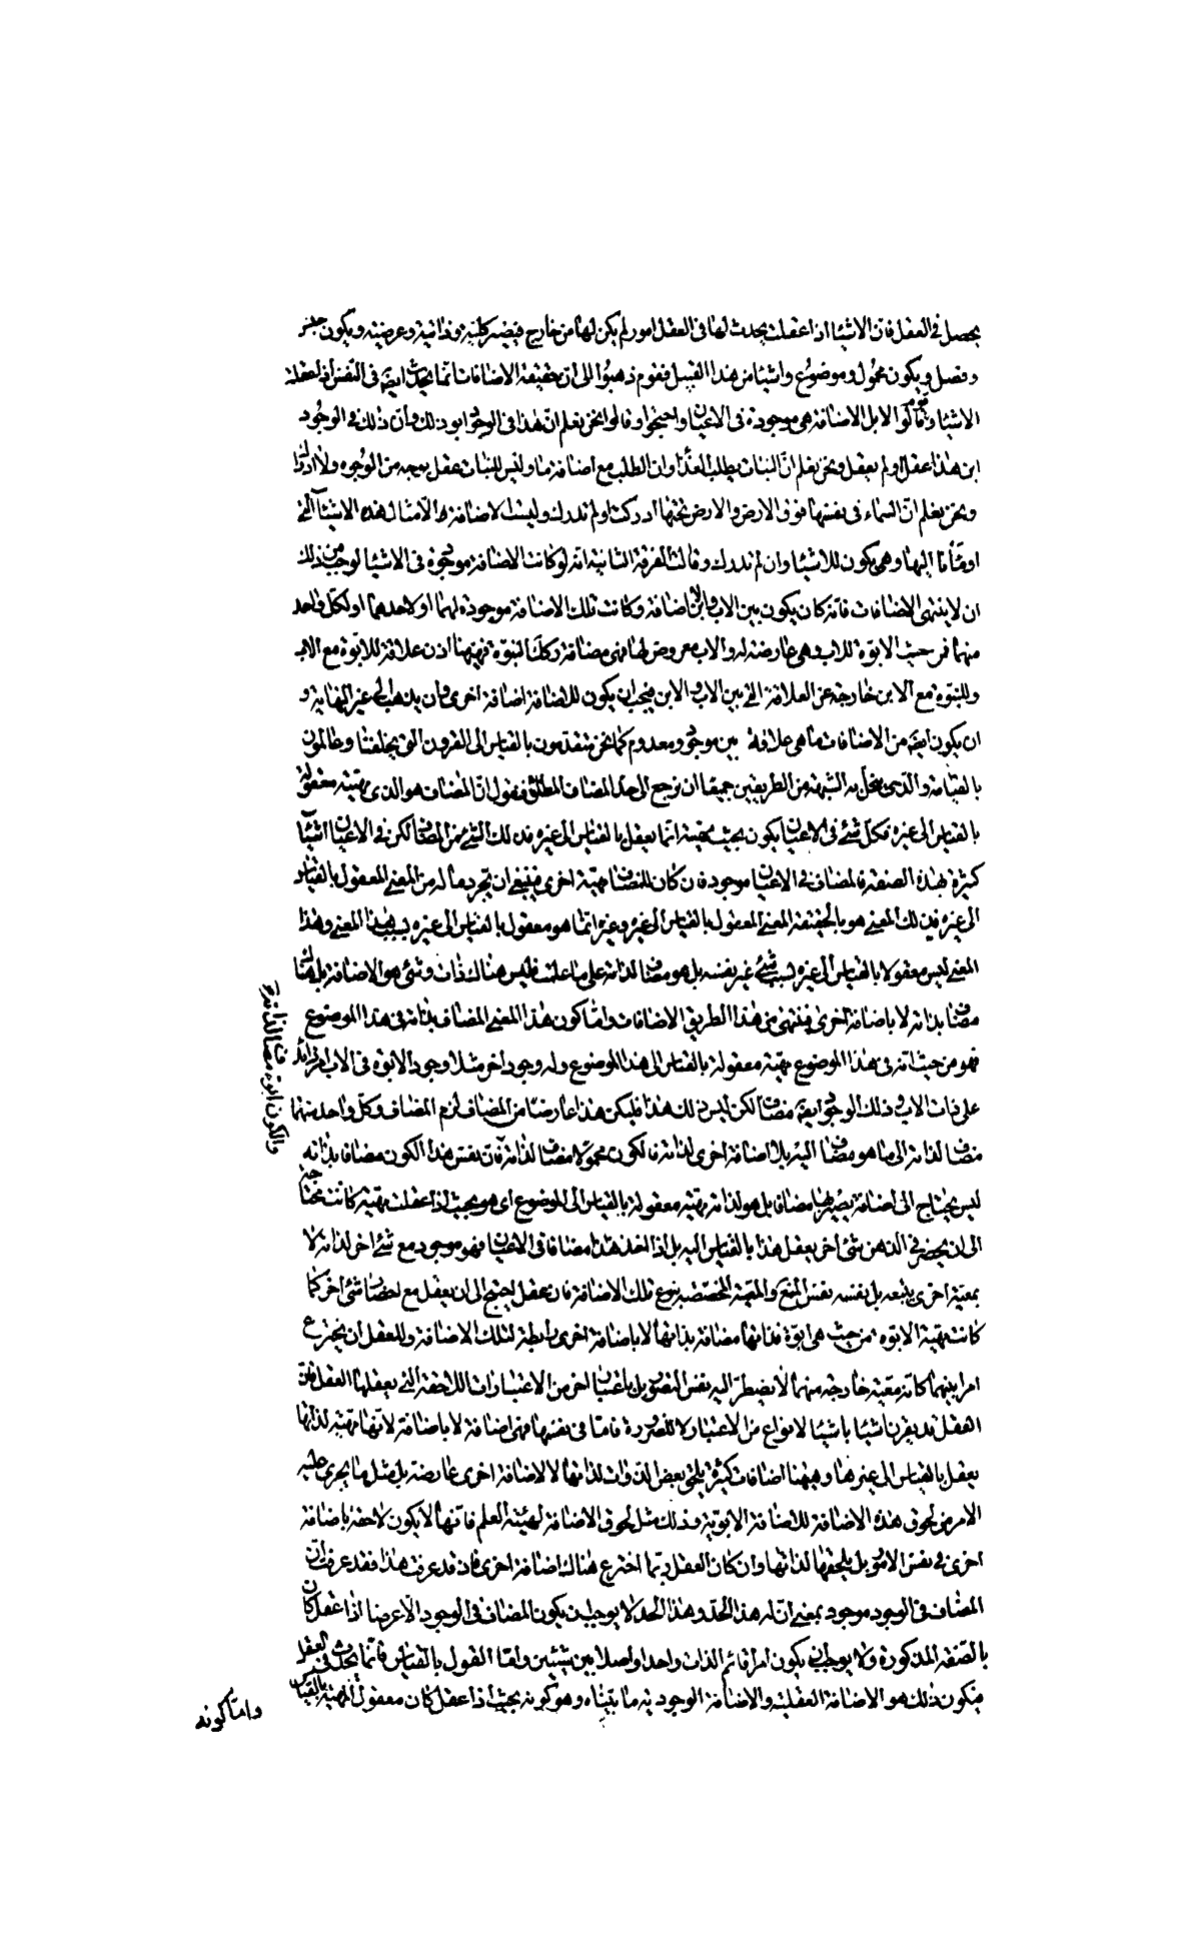 يحصل في العقل فان الاشيا اذا عقلت يحدث لها في العقل امور لم يكن لها من خارج فيصير كلية وذاتية وعرضية ويكون جنس
وفصل ويكون محمول وموضوع واشيا من هذا القبيل فقوم ذهبوا الى ان حقيقة الاضافات انما يحدث ايضا في النفس اذا عقلت
الاشيا وقوم قالوا لا بل الاضافة هي موجودة في الاعيان واحتجوا وقالوا نحن نعلم ان هذا في الوجود ابو ذلك وان ذلك في الوجود
ابن هذا عقل او لم يعقل ونحن نعلم ان النبات يطلب الغذا وان الطلب مع اضافة ما وليس للنبات عقل بوجه من الوجوه ولا ادراك
ونحن نعلم ان السماء في نفسها فوق الارض والارض تحتها ادركت او لم تدرك وليست الاضافة الا امثال هذه الاشيآ التي
اومأنا اليها وهي يكون للاشيا وان لم تدرك وقالت الفرقة الثانية انه لو كانت الاضافة موجودة في الاشيا لوجب من ذلك
ان لا ينتهى الاضافات فانه كان يكون بين الاب والابن اضافة وكانت تلك الاضافة موجودة لهما او لاحدهما او لكل واحد
منهما فمن حيث الابوة للاب وهي عارضة له والاب معروض لها فهى مضافة وكك البنوة فههنا اذن علاقة للابوة مع الاب
وللبنوة مع الابن خارجة عن العلاقة التي بين الاب والابن فيجب ان يكون للاضافة اضافة اخرى وان يذهب الى غير النهاية و
ان يكون ايضا من الاضافات ما هي علاقة بين موجود ومعدوم كما نحن متقدمون بالقياس الى القرون التي تخلفنا وعالمون
بالقيامة والذي ينحل به الشبهة من الطريقين جميعا ان نرجع الى حد المضاف المطلق فنقول ان المضاف هو الذي مهيته معقولة
بالقياس الى غيره فكل شئ في الاعيان يكون بحيث مهيته انما يعقل بالقياس الى غيره فذلك الشئ من المضاف لكن في الاعيان اشيآ
كثيرة بهذه الصفة فالمضاف في الاعيان موجود فان كان للمضاف مهية اخرى فينبغي ان يجرد ما له من المعنى المعقول بالقياس
الى غيره فذلك المعنى هو بالحقيقة المعنى المعقول بالقياس الى غيره وغيره انما هو معقول بالقياس الى غيره بسبب هذا المعنى وهذا
المعنى ليس معقولا بالقياس الى غيره بسبب شئ غير نفسه بل هو مضاف لذاته على ما علمت فليس هناك ذات وشئ هو الاضافة بل هناك
مضاف بذاته لا باضافة اخرى فينتهى من هذا الطريق الاضافات واما كون هذا المعنى المضاف بذاته في هذا الموضوع
فهو من حيث انه في هذا الموضوع مهيته معقولة بالقياس الى هذا الموضوع وله وجود اخر مثلا وجود الابوة في الاب امر زائد
على ذات الاب وذلك الوجود ايضا مضاف لكن ليس ذلك هذا فليكن هذا عارضا من المضاف لزم المضاف وكل واحد منهما
مضاف لذاته الى ما هو مضاف اليه بلا اضافة اخرى لذاته فالكون محمولا مضاف لذاته فان نفس هذا الكون مضاف بذاته
ليس يحتاج الى اضافة يصير بها مضافا بل هو لذاته مهيته معقولة بالقياس الى الموضوع اى هو بحيث اذا عقلت مهيته كانت محتاجة
الى ان يحضر في الذهن شئ اخر يعقل هذا بالقياس اليه بل اذا اخذ هذا مضافا في الاعيان فهو موجود مع شئ اخر لذاته لا
بمعية اخرى يتبعه بل نفسه نفس المع والمعية المخصصة بنوع تلك الاضافة فان عقل احتيج الى ان يعقل مع احضار شئ اخر كما
كانت مهية الابوة من حيث هي ابوة فذاتها مضافة بذاتها لا باضافة اخرى رابطة لتلك الاضافة وللعقل ان يخترع
امرا بينهما كانه معية خارجة منهما لا يضطر اليه نفس التصور بل باعتبار اخر من الاعتبارات اللاحقة التي يعقلها العقل فان
العقل قد يقرن اشيا باشيا لانواع من الاعتبار لا للضرورة فاما في نفسها فهي اضافة لا باضافة لانها مهيته لذاتها
يعقل بالقياس الى غيرها وههنا اضافات كثيرة يلحق بعض الذوات لذاتها لا لاضافة اخرى عارضة بل مثل ما يجرى عليه
الامر من لحوق هذه الاضافة للاضافة الابوتية وذلك مثل لحوق الاضافة لهيئة العلم فانها لا يكون لاحقة باضافة
اخرى في نفس الامور بل يلحقها لذاتها وان كان العقل ربما اخترع هناك اضافة اخرى فان قد عرفت هذا فقد عرفت ان
المضاف في الوجود موجود بمعنى ان له هذا الحد وهذا الحد لا يوجب ان يكون المضاف في الوجود الا عرضا اذا عقل كان
بالصفة المذكورة ولا يوجب ان يكون امرا قائم الذات واحدا واصلا بين شيئين واما القول بالقياس فانما يحدث في العقل
فيكون ذلك هو الاضافة العقلية والاضافة الوجودية ما بيناه وهو كونه بحيث اذا عقل كان معقول المهية بالقياس
واما كونه